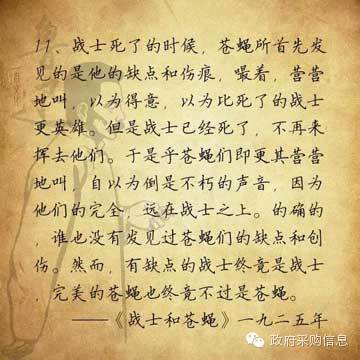 11、战士死了的时候，苍蝇所首先发
见的是他的缺点和伤痕，嘬着，营营
地叫，以为得意，以为比死了的战士
更英雄。但是战士已经死了，不再来
挥去他们。于是乎苍蝇们即更其营营
地叫，自以为倒是不朽的声音，因为
他们的完全，远在战士之上。的确的
，谁也没有发见过苍蝇们的缺点和创
伤。然而，有缺点的战士终竟是战士
，完美的苍蝇也终竟不过是苍蝇。
——《战士和苍蝇》一九二五年
政府采购信息